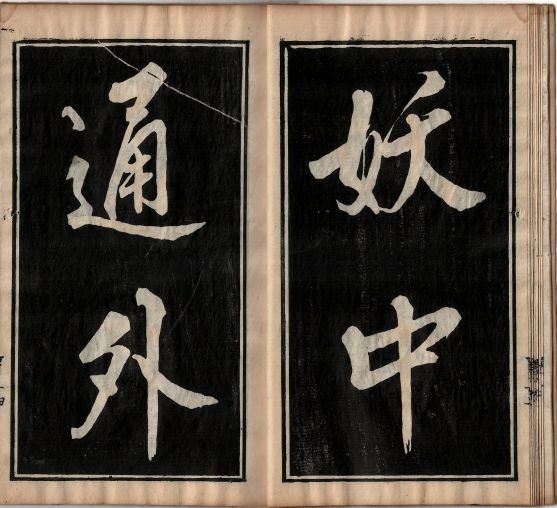 妖中
通外